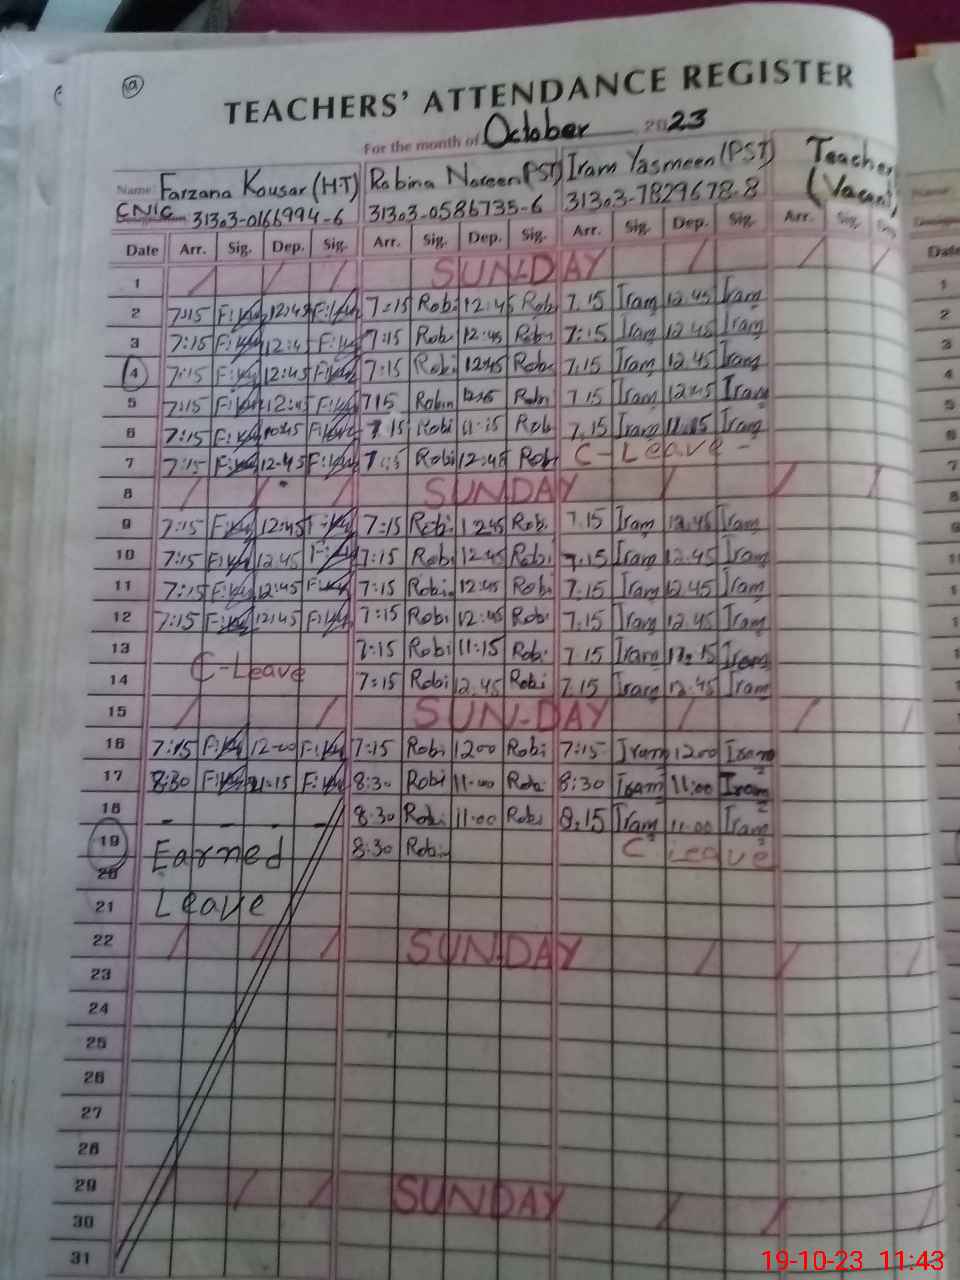 10
TEACHERS' ATTENDANCE REGISTER
For the month of October 2023
Name Farzana Kousar (HT) Robina Noreen (PST) Iram Yasmeen (PST) Teacher
CNIC 31303-0166994-6 31303-0586735-6 31303-7829678-8 (Vacant)
Date Arr. Sig. Dep. Sig. Arr. Sig. Dep. Sig. Arr. Sig. Dep. Sig. Arr. Sig. Dep.
1 SUNDAY
2 7:15 12:45 7:15 Robi 12:45 Rob 7.15 Iram 12.45 Iram
3 7:15 12:4 7:15 Rob 12:45 Rob 7:15 Iram 12.45 Iram
4 7:15 12:45 7:15 Rob 12:45 Rob 7.15 Iram 12.45 Iram
5 7:15 12:4 715 Robin Robn 7 15 Iram 12:45 Iram
6 7:15 7 15 Robi 11:15 Rob 7.15 Iram 11.15 Iram
7 7:15 12-45 Robi 12:45 Rob C-Leave -
8 SUNDAY
9 7:15 12:45 7:15 Robi 1245 Rob. 7.15 Iram 12.45 Iram
10 7:15 12.45 7:15 Robi 12:45 Robi 7.15 Iram 12.45 Iram
11 7:15 12:45 7:15 Robi 12:45 Rob 7.15 Iram 12.45 Iram
12 7:15 12:45 7:15 Robi 12:45 Rob 7.15 Iram 12.45 Iram
13 7:15 Robi 11:15 Rob 7 15 Iram Iram
C-Leave
14 7:15 Robi 12.45 Robi 7.15 Iram 12.45 Iram
15 SUN-DAY
16 7:15 12-00 7:15 Robi 1200 Robi 7:15 Iram 1200 Iram
17 8:30 11:15 8:30 Robi 11:00 Rob 8:30 Iram 11:00 Iram
18 - - - - 8:30 Robi 11:00 Robi 8.15 Iram 11.00 Iram
19 Earned 8:30 Robi C Leave
20
21 Leave
22 SUNDAY
23
24
25
26
27
28
29 SUNDAY
30
31
19-10-23 11:43